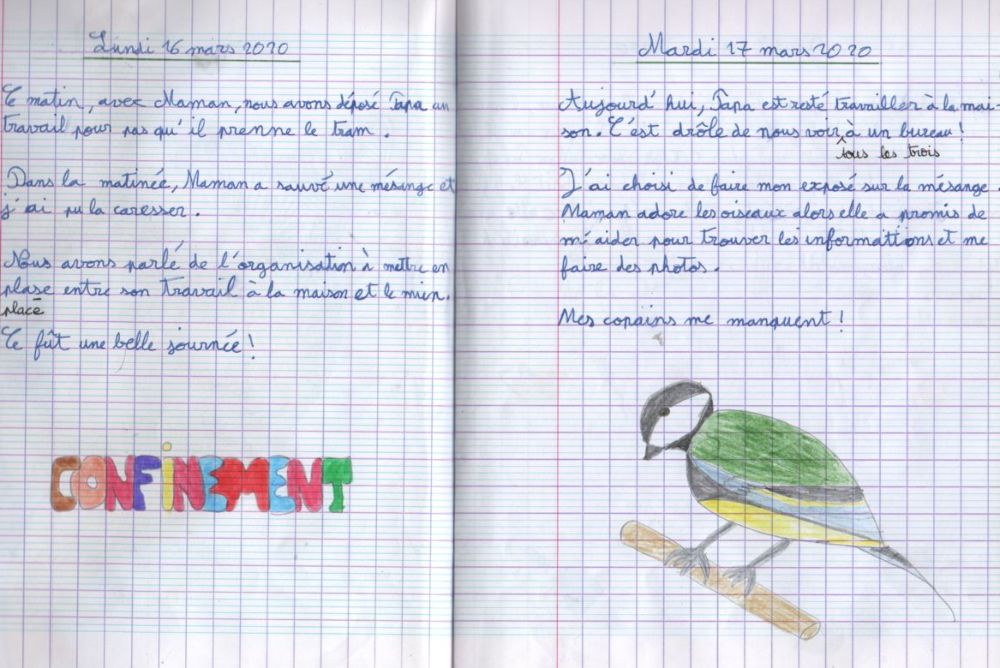 Lundi 16 mars 2020
Ce matin, avec Maman, nous avons déposé Papa au
travail pour pas qu'il prenne le tram.
Dans la matinée, Maman a sauvé une mésange et
j'ai pu la caresser.
Nous avons parlé de l'organisation à mettre en
plase entre son travail à la maison et le mien.
place
Ce fût une belle journée !
CONFINEMENT
Mardi 17 mars 2020
Aujourd'hui, Papa est resté travailler à la mai-
son. C'est drôle de nous voir à un bureau !
tous les trois
J'ai choisi de faire mon exposé sur la mésange.
Maman adore les oiseaux alors elle a promis de
m'aider pour trouver les informations et me
faire des photos.
Mes copains me manquent !